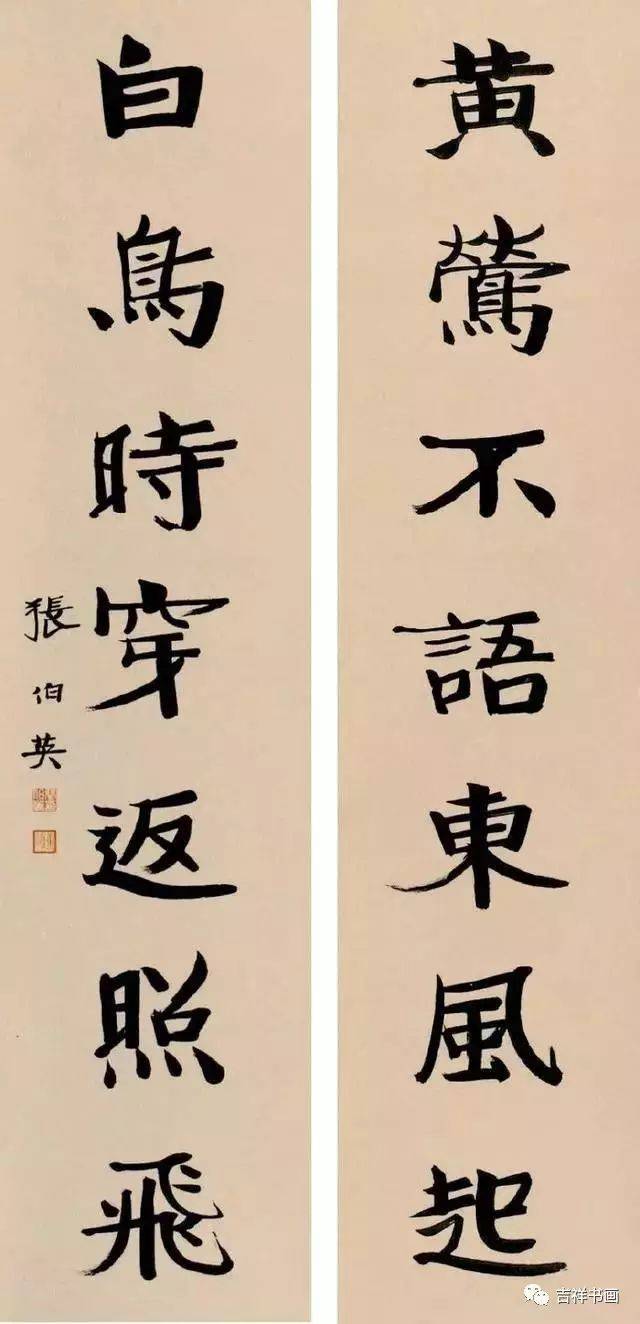 黄鶯不語東風起
白鳥時穿返照飛
張伯英
吉祥书画